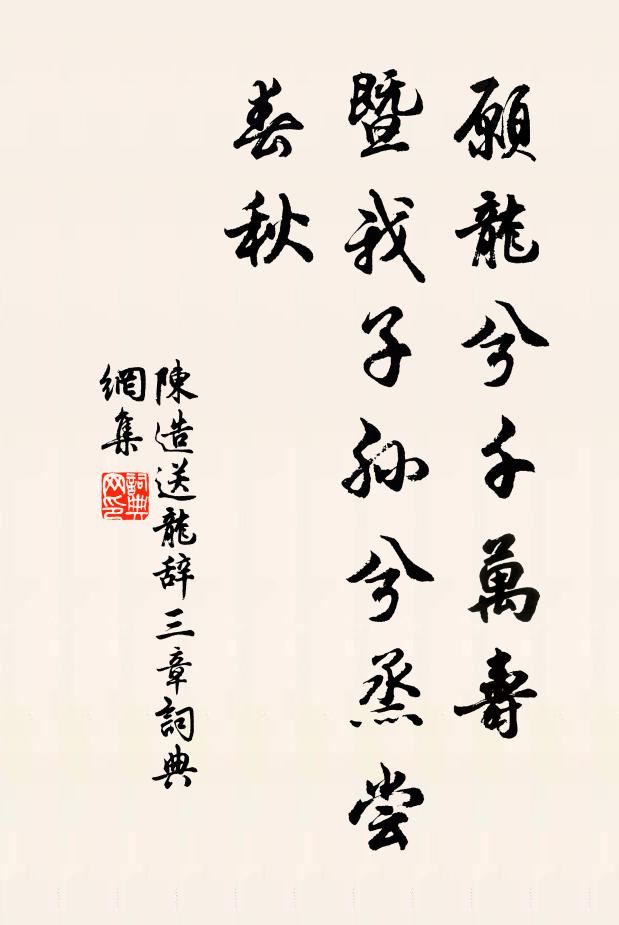 願龍兮千萬壽
暨我子孙兮烝尝
春秋
陳造送龍辞三章詞典
網集
詞典
网印